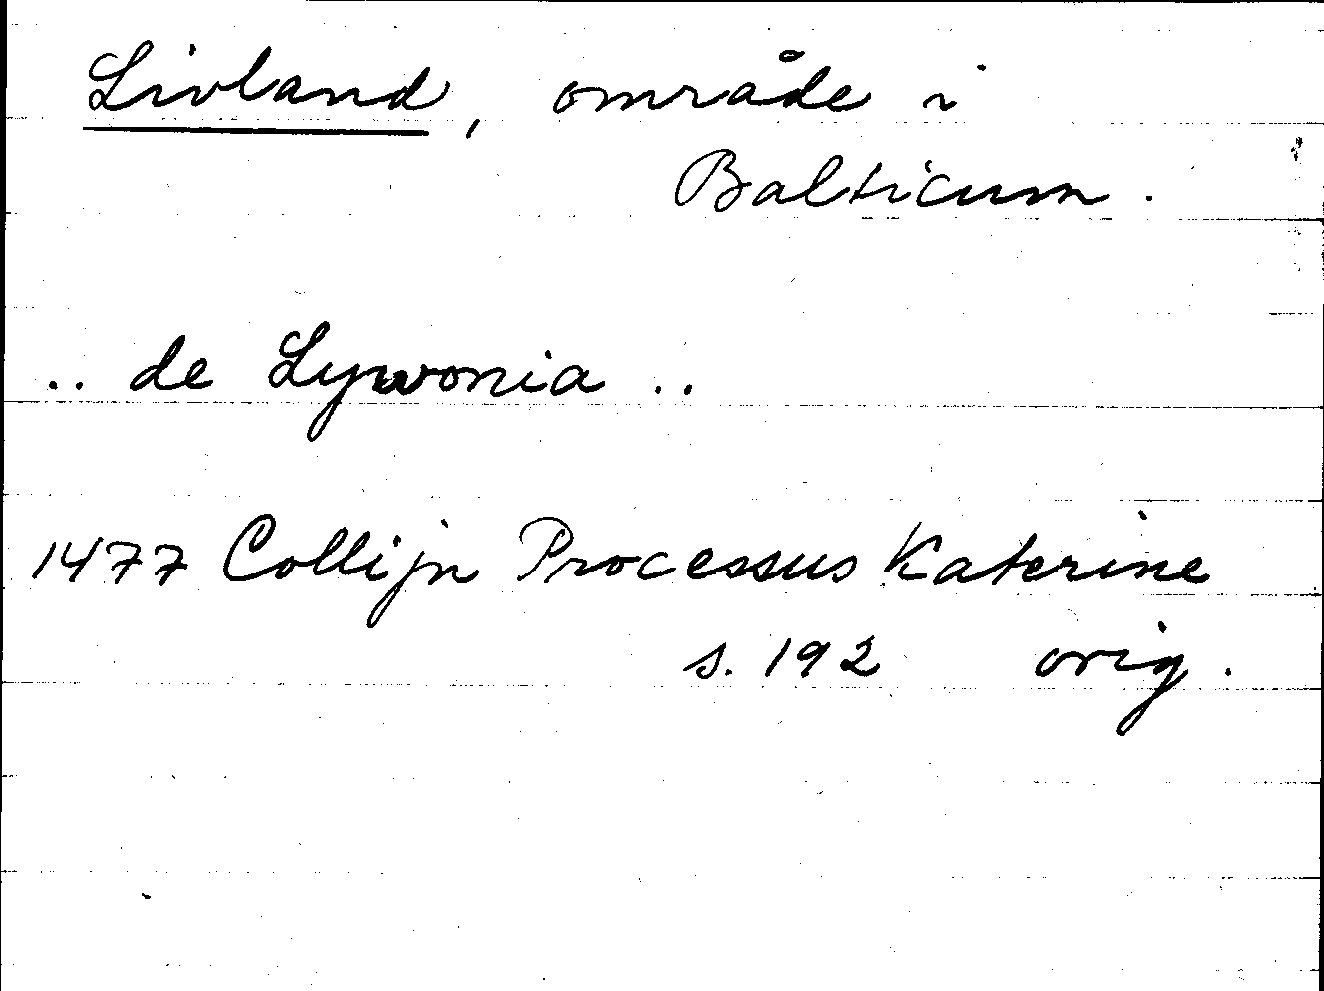 Livland, område i
Balticum.
.. de Lywonia ..
1477 Collijn Processus Katerine
s. 192 orig.